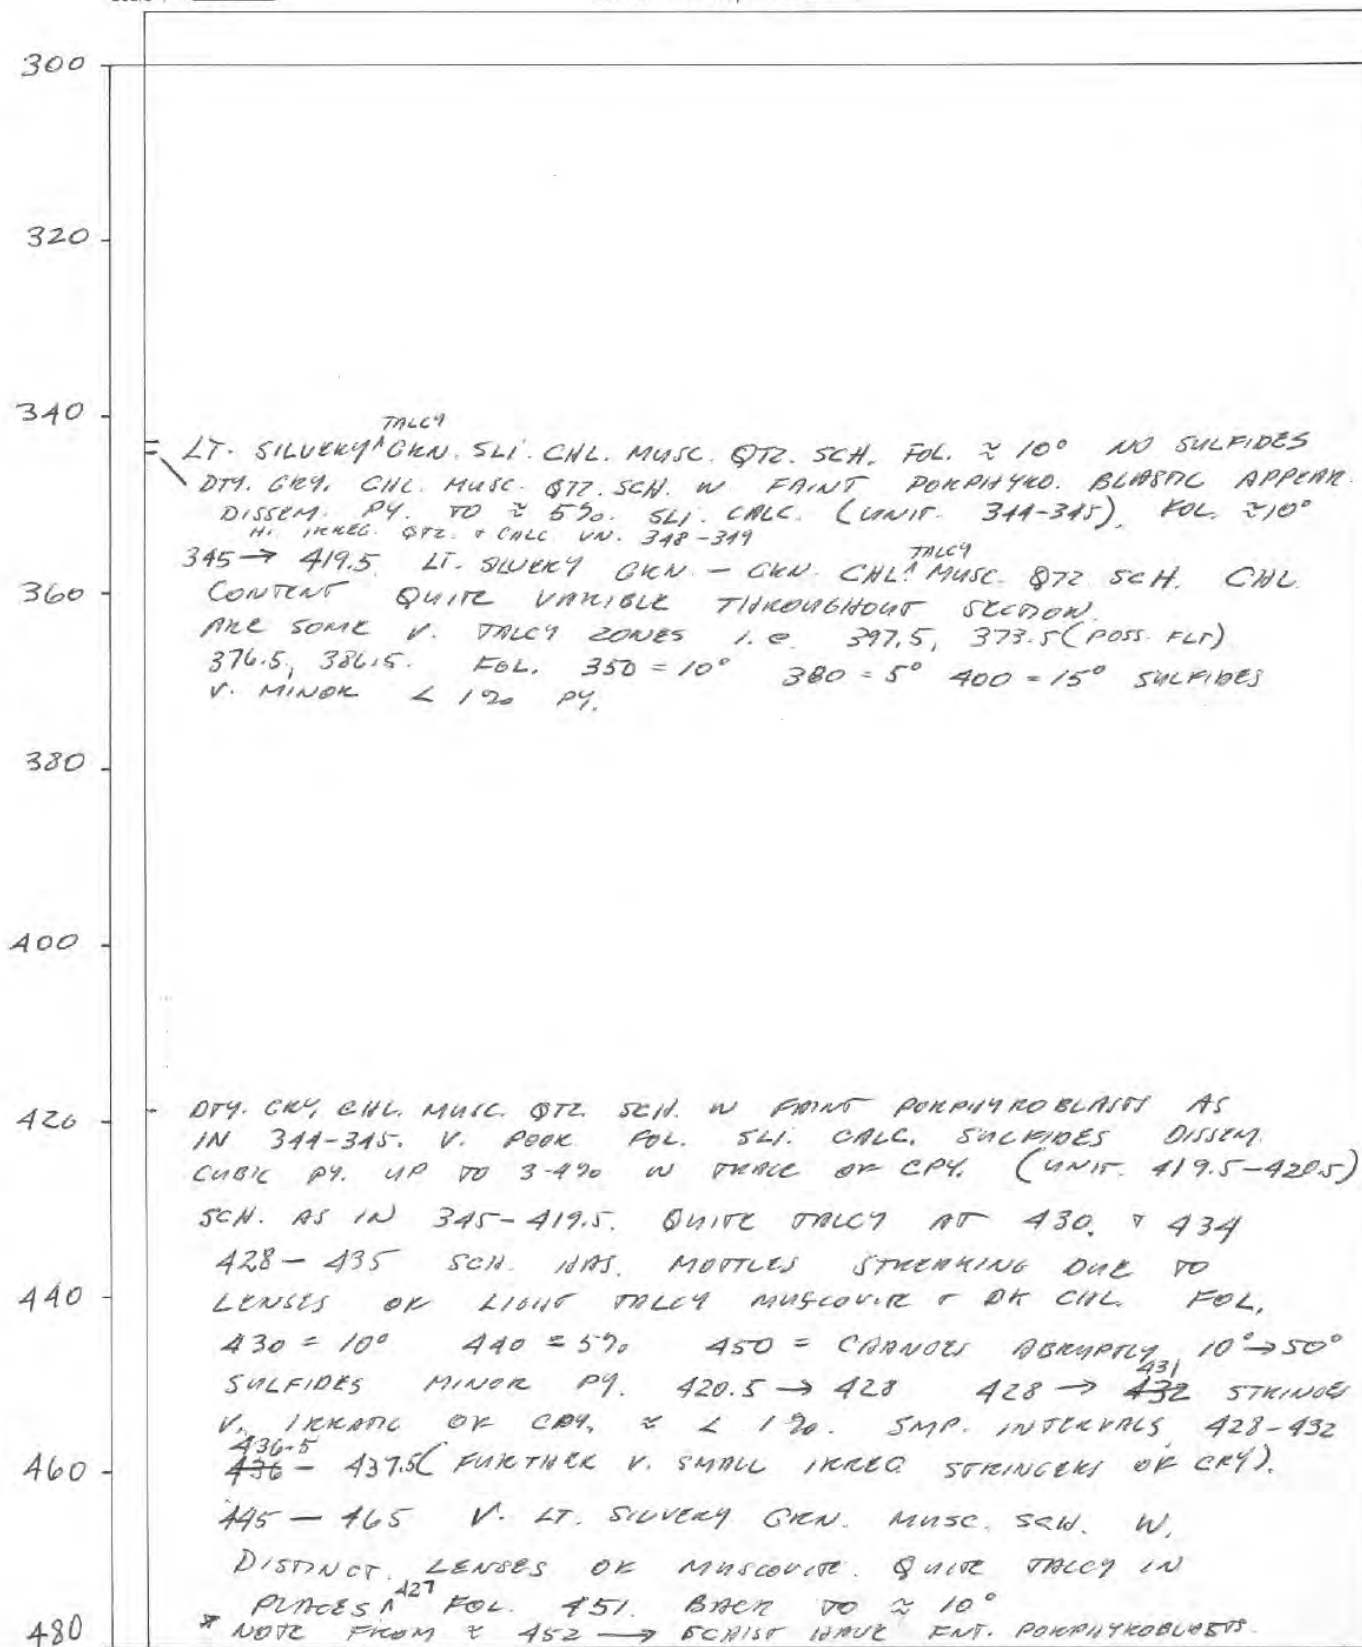 300
320
340
TALCY
LT. SILVERY ^ GRN. SLI. CHL. MUSC. QTZ. SCH. FOL. ≈ 10° NO SULFIDES
DTY. GRY. CHL. MUSC. QTZ. SCH. W FAINT PORPHYRO. BLASTIC APPEAR.
DISSEM. PY. TO ≈ 5%. SLI. CALC. (UNIT. 344-345), FOL. ≈10°
HI. IRREG. QTZ. & CALC VN. 348-349
TALCY
345 → 419.5 LT. SILVERY GRN - GRN. CHL. ^ MUSC. QTZ SCH. CHL
360
CONTENT QUITE VARIBLE THROUGHOUT SECTION.
ARE SOME V. TALCY ZONES i.e. 397.5, 373.5 (POSS. FLT)
376.5, 386.5. FOL. 350 = 10° 380 = 5° 400 = 15° SULFIDES
V. MINOR < 1% PY.
380
400
420
DTY. GRY, CHL. MUSC. QTZ. SCH. W FAINT PORPHYROBLASTS AS
IN 344-345. V. POOR FOL. SLI. CALC. SULFIDES DISSEM.
CUBIC PY. UP TO 3-4% W TRACE OF CPY. (UNIT. 419.5-420.5)
SCH. AS IN 345-419.5. QUITE TALCY AT 430. & 434
428 - 435 SCH. HAS. MOTTLES STREAKING DUE TO
440
LENSES OF LIGHT TALCY MUSCOVITE & DK CHL. FOL,
430 = 10° 440 = 5% 450 = CHANGES ABRUPTLY 10° → 50°
431
SULFIDES MINOR PY. 420.5 → 428 428 → 432 STRINGES
V. IRRATIC OF CPY. ≈ < 1%. SMP. INTERVALS 428-432
436.5
460
436 - 437.5 (FURTHER V. SMALL IRREG STRINGERS OF CPY).
445 - 465 V. LT. SILVERY GRN. MUSC. SCH. W.
DISTINCT. LENSES OF MUSCOVITE. QUITE TALCY IN
427
PLACES ^ FOL. 451. BACK TO ≈ 10°
480
* NOTE FROM ≈ 452 → SCHIST HAVE FNT. PORPHYROBLASTS.